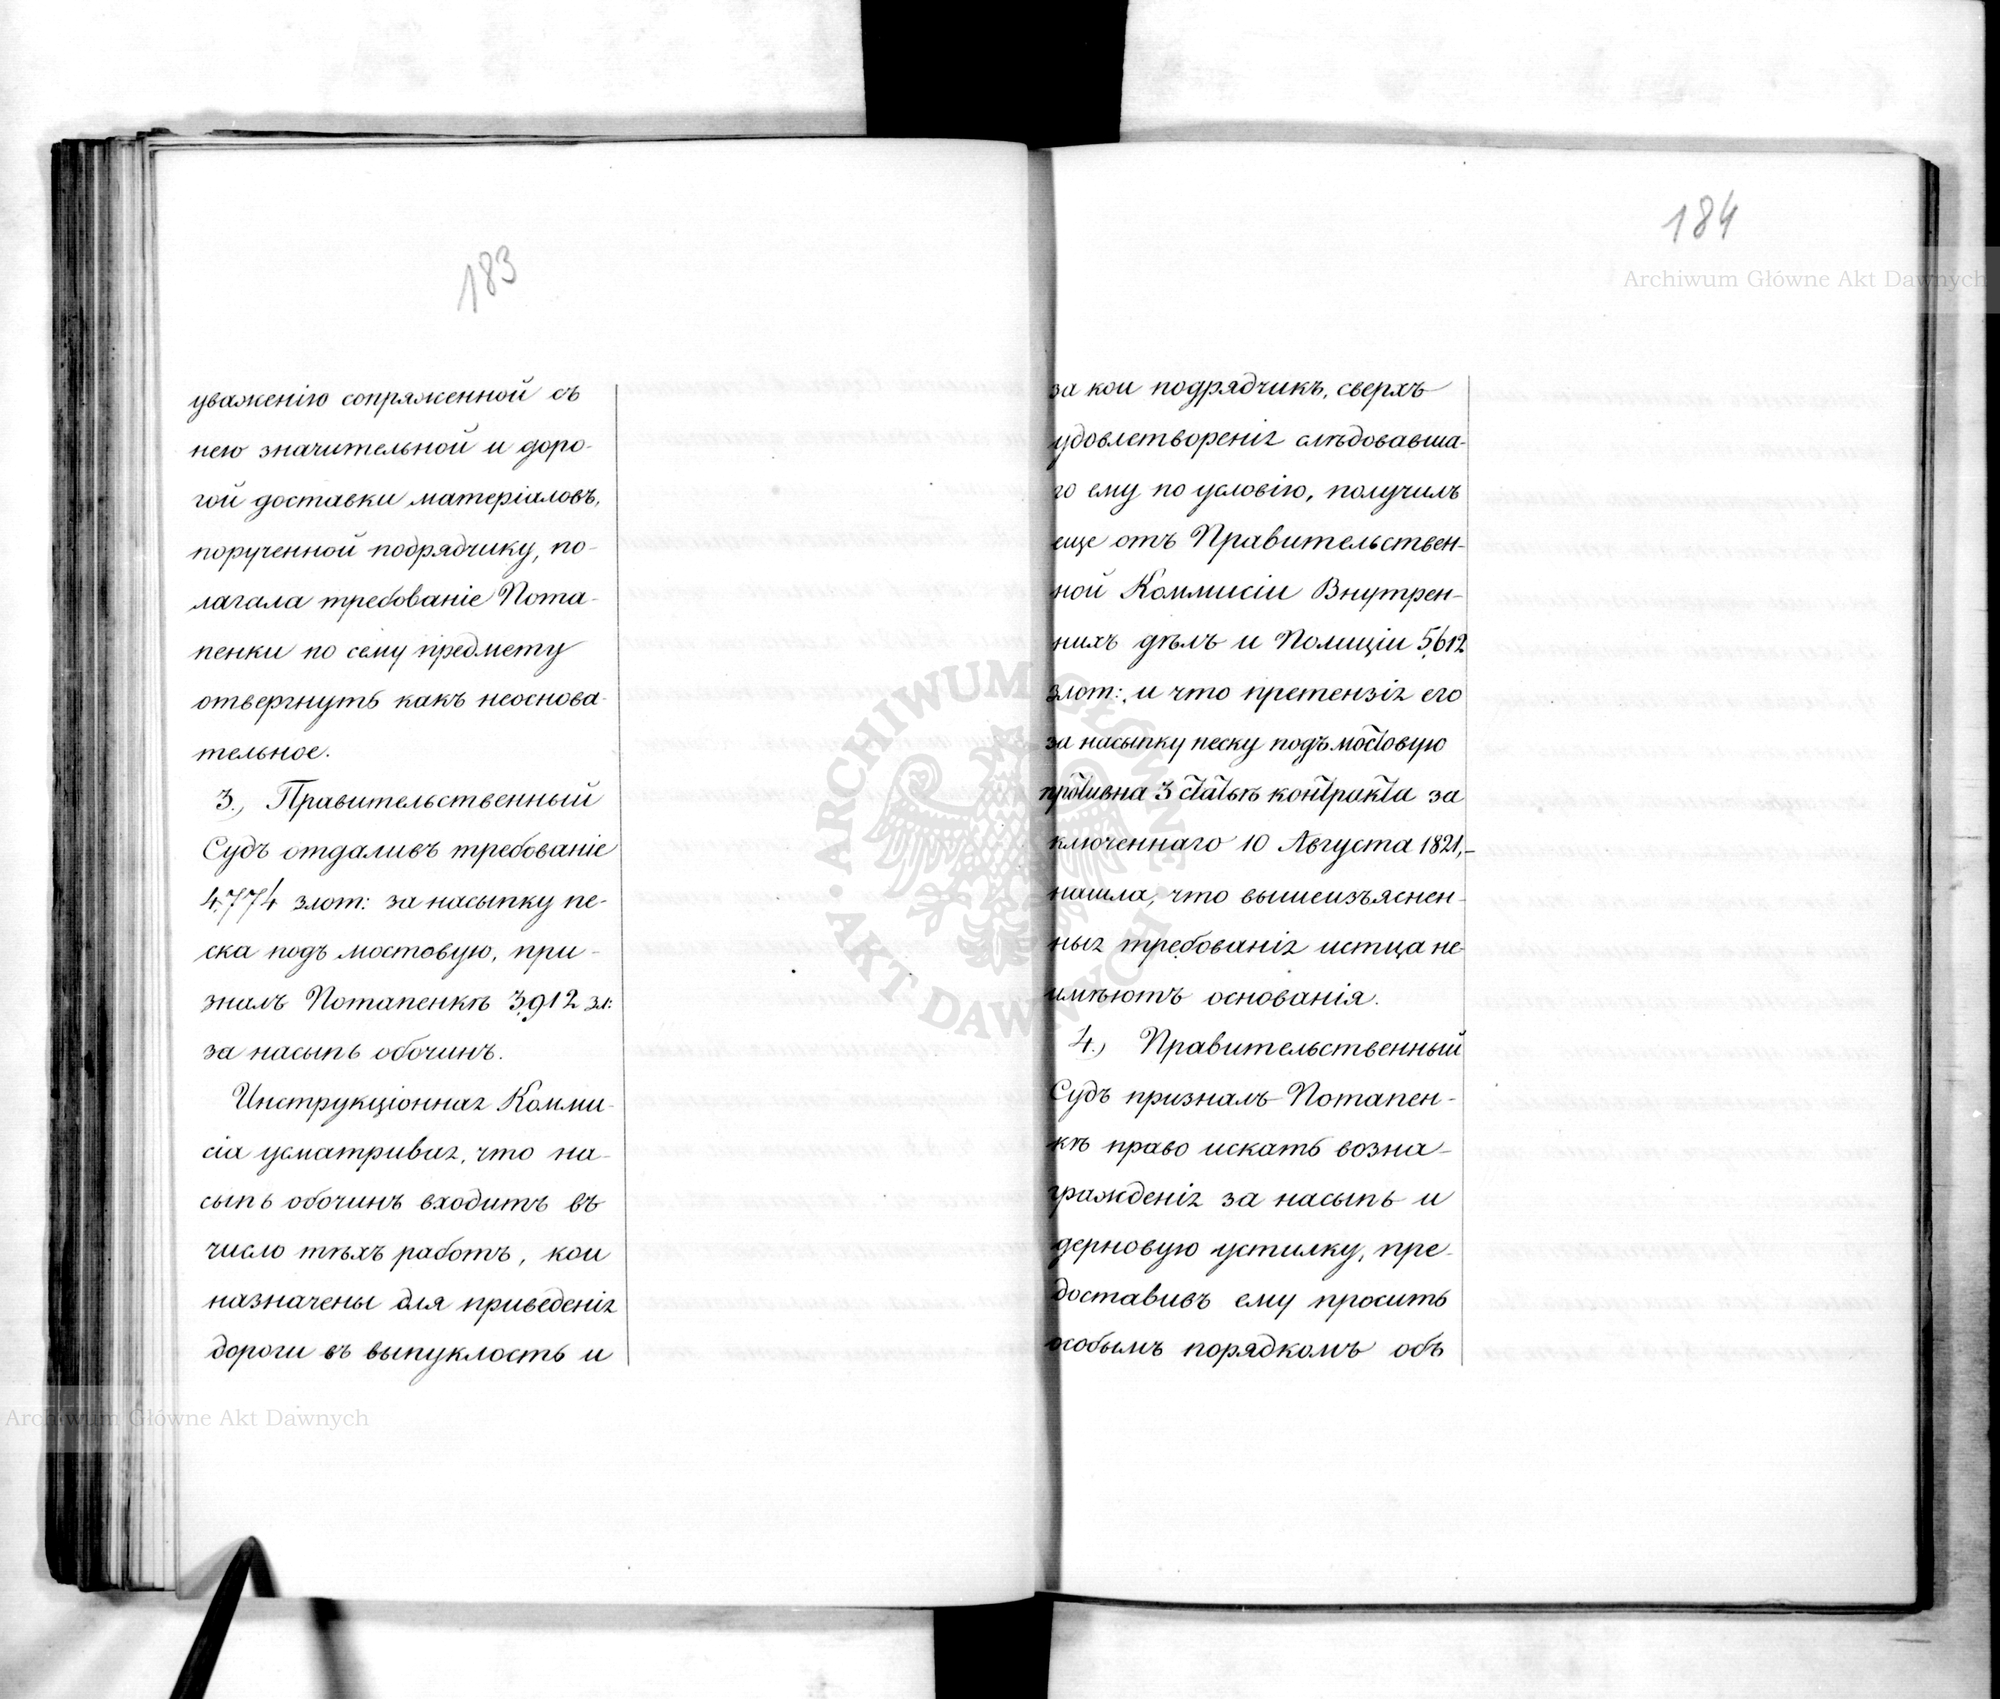 183
уваженію сопряженной съ
нею значительной и доро-
гой доставки матеріаловъ,
порученной подрядчику, по-
лагала требованіе Пота-
пенки по сему предмету
отвергнуть какъ неоснова-
тельное.
3., Правительственный
Судъ отдаливъ требованіе
4,774 злот: за насыпку пе-
ска подъ мостовую, при-
зналъ Потапенкѣ 3,912 зл:
за насыпь обочинъ.
Инструкціонная Комми-
сія усматривая, что на-
сыпь обочинъ входитъ въ
число тѣхъ работъ, кои
назначены для приведенія
дороги въ выпуклость и
184
за кои подрядчикъ, сверхъ
удовлетворенія слѣдовавша-
го ему по условію, получилъ
еще отъ Правительствен-
ной Коммисіи Внутрен-
нихъ дѣлъ и Полиціи 5,612
злот:, и что претензія его
за насыпку песку подъ мостовую
противна 3 статьѣ контракта за
ключеннаго 10 Августа 1821,-
нашла, что вышеизъяснен-
ныя требованія истца не
имѣютъ основанія.
4., Правительственный
Судъ призналъ Потапен-
кѣ право искать возна-
гражденія за насыпь и
дерновую устилку, пре-
доставивъ ему просить
особымъ порядкомъ объ
Archiwum Główne Akt Dawnych
ARCHIWUM GŁÓWNE
AKT DAWNYCH
Archiwum Główne Akt Dawnych